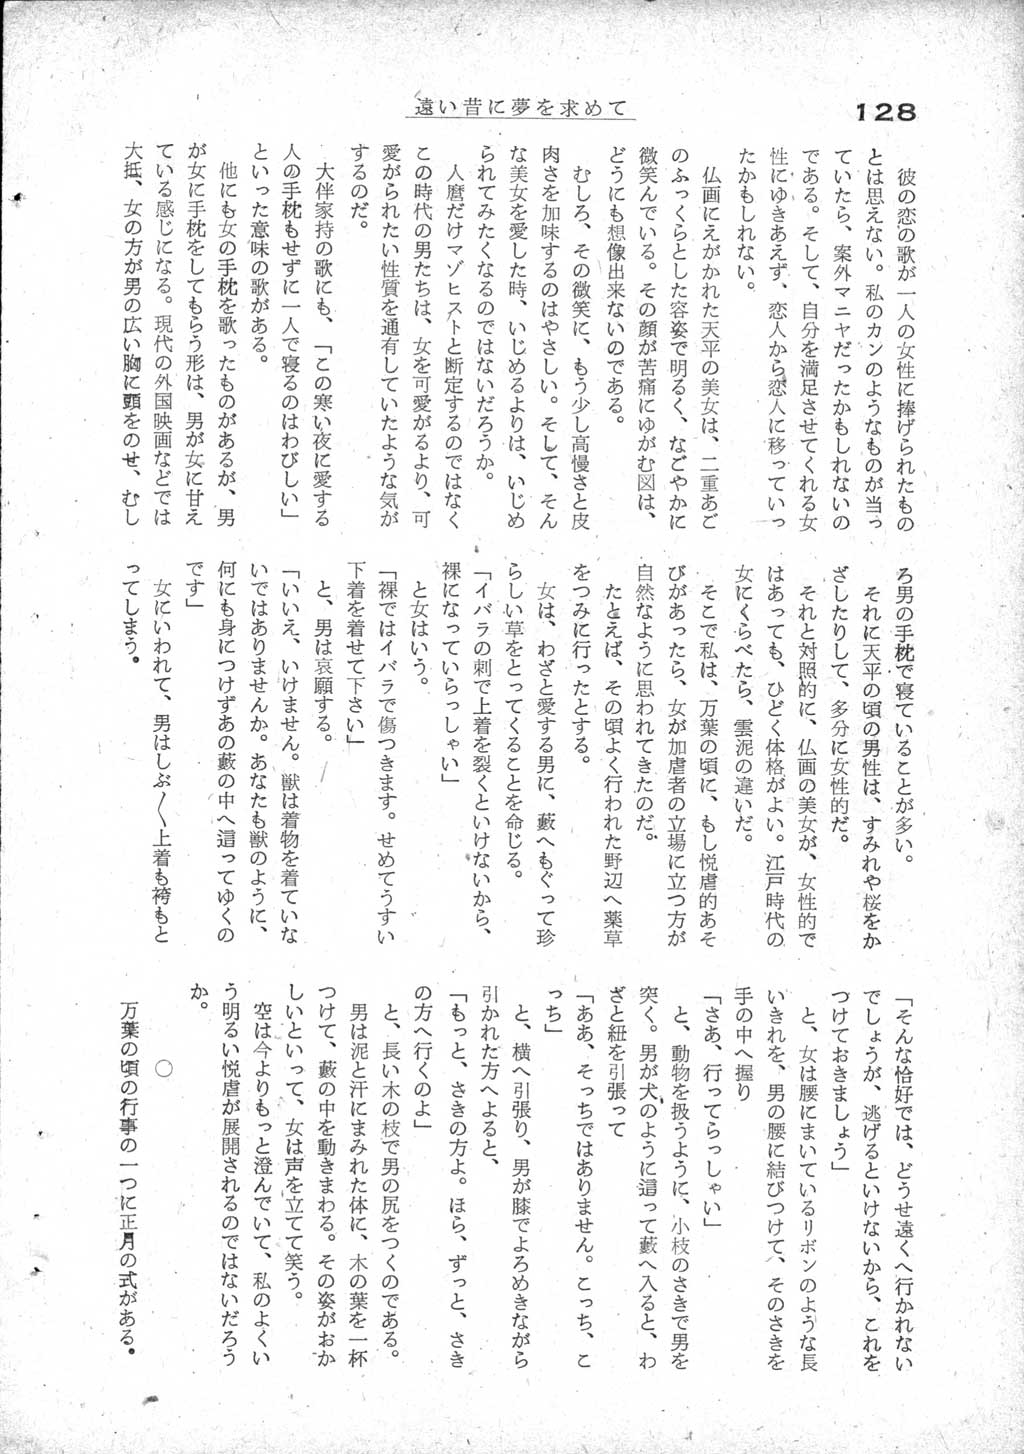 128
遠い昔に夢を求めて
彼の恋の歌が一人の女性に捧げられたもの
とは思えない。私のカンのようなものが当っ
ていたら、案外マニヤだったかもしれないの
である。そして、自分を満足させてくれる女
性にゆきあえず、恋人から恋人に移っていっ
たかもしれない。
仏画にえがかれた天平の美女は、二重あご
のふっくらとした容姿で明るく、なごやかに
微笑んでいる。その顔が苦痛にゆがむ図は、
どうにも想像出来ないのである。
むしろ、その微笑に、もう少し高慢さと皮
肉さを加味するのはやさしい。そして、そん
な美女を愛した時、いじめるよりは、いじめ
られてみたくなるのではないだろうか。
人麿だけマゾヒストと断定するのではなく
この時代の男たちは、女を可愛がるより、可
愛がられたい性質を通有していたような気が
するのだ。
大伴家持の歌にも、「この寒い夜に愛する
人の手枕もせずに一人で寝るのはわびしい」
といった意味の歌がある。
他にも女の手枕を歌ったものがあるが、男
が女に手枕をしてもらう形は、男が女に甘え
ている感じになる。現代の外国映画などでは
大抵、女の方が男の広い胸に頭をのせ、むし
ろ男の手枕で寝ていることが多い。
それに天平の頃の男性は、すみれや桜をか
ざしたりして、多分に女性的だ。
それと対照的に、仏画の美女が、女性的で
はあっても、ひどく体格がよい。江戸時代の
女にくらべたら、雲泥の違いだ。
そこで私は、万葉の頃に、もし悦虐的あそ
びがあったら、女が加虐者の立場に立つ方が
自然なように思われてきたのだ。
たとえば、その頃よく行われた野辺へ薬草
をつみに行ったとする。
女は、わざと愛する男に、藪へもぐって珍
らしい草をとってくることを命じる。
「イバラの刺で上着を裂くといけないから、
裸になっていらっしゃい」
と女はいう。
「裸ではイバラで傷つきます。せめてうすい
下着を着せて下さい」
と、男は哀願する。
「いいえ、いけません。獣は着物を着ていな
いではありませんか。あなたも獣のように、
何にも身につけずあの藪の中へ這ってゆくの
です」
女にいわれて、男はしぶ〱上着も袴もと
ってしまう。
「そんな恰好では、どうせ遠くへ行かれない
でしょうが、逃げるといけないから、これを
つけておきましょう」
と、女は腰にまいているリボンのような長
いきれを、男の腰に結びつけて、そのさきを
手の中へ握り
「さあ、行ってらっしゃい」
と、動物を扱うように、小枝のさきで男を
突く。男が犬のように這って藪へ入ると、わ
ざと紐を引張って
「ああ、そっちではありません。こっち、こ
っち」
と、横へ引張り、男が膝でよろめきながら
引かれた方へよると、
「もっと、さきの方よ。ほら、ずっと、さき
の方へ行くのよ」
と、長い木の枝で男の尻をつくのである。
男は泥と汗にまみれた体に、木の葉を一杯
つけて、藪の中を動きまわる。その姿がおか
しいといって、女は声を立てて笑う。
空は今よりもっと澄んでいて、私のよくい
う明るい悦虐が展開されるのではないだろう
か。
○
万葉の頃の行事の一つに正月の式がある。